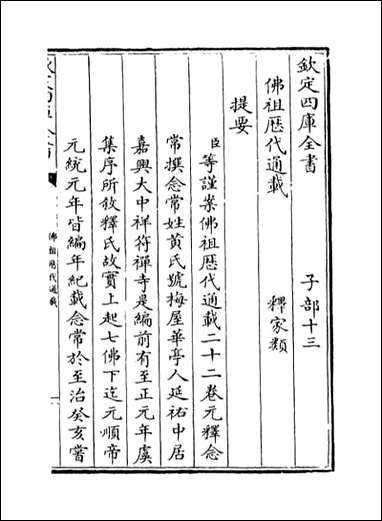 欽定四庫全書　　　　子部十三
佛祖歴代通載　　　　釋家類
提要
臣等謹案佛祖歴代通載二十二卷元釋念
常撰念常姓黄氏號梅屋華亭人延祐中居
嘉興大中祥符禪寺是編前有至正元年虞
集序所敘釋氏故實上起七佛下迄元順帝
元統元年皆編年紀載念常於至治癸亥嘗
佛祖歴代通載